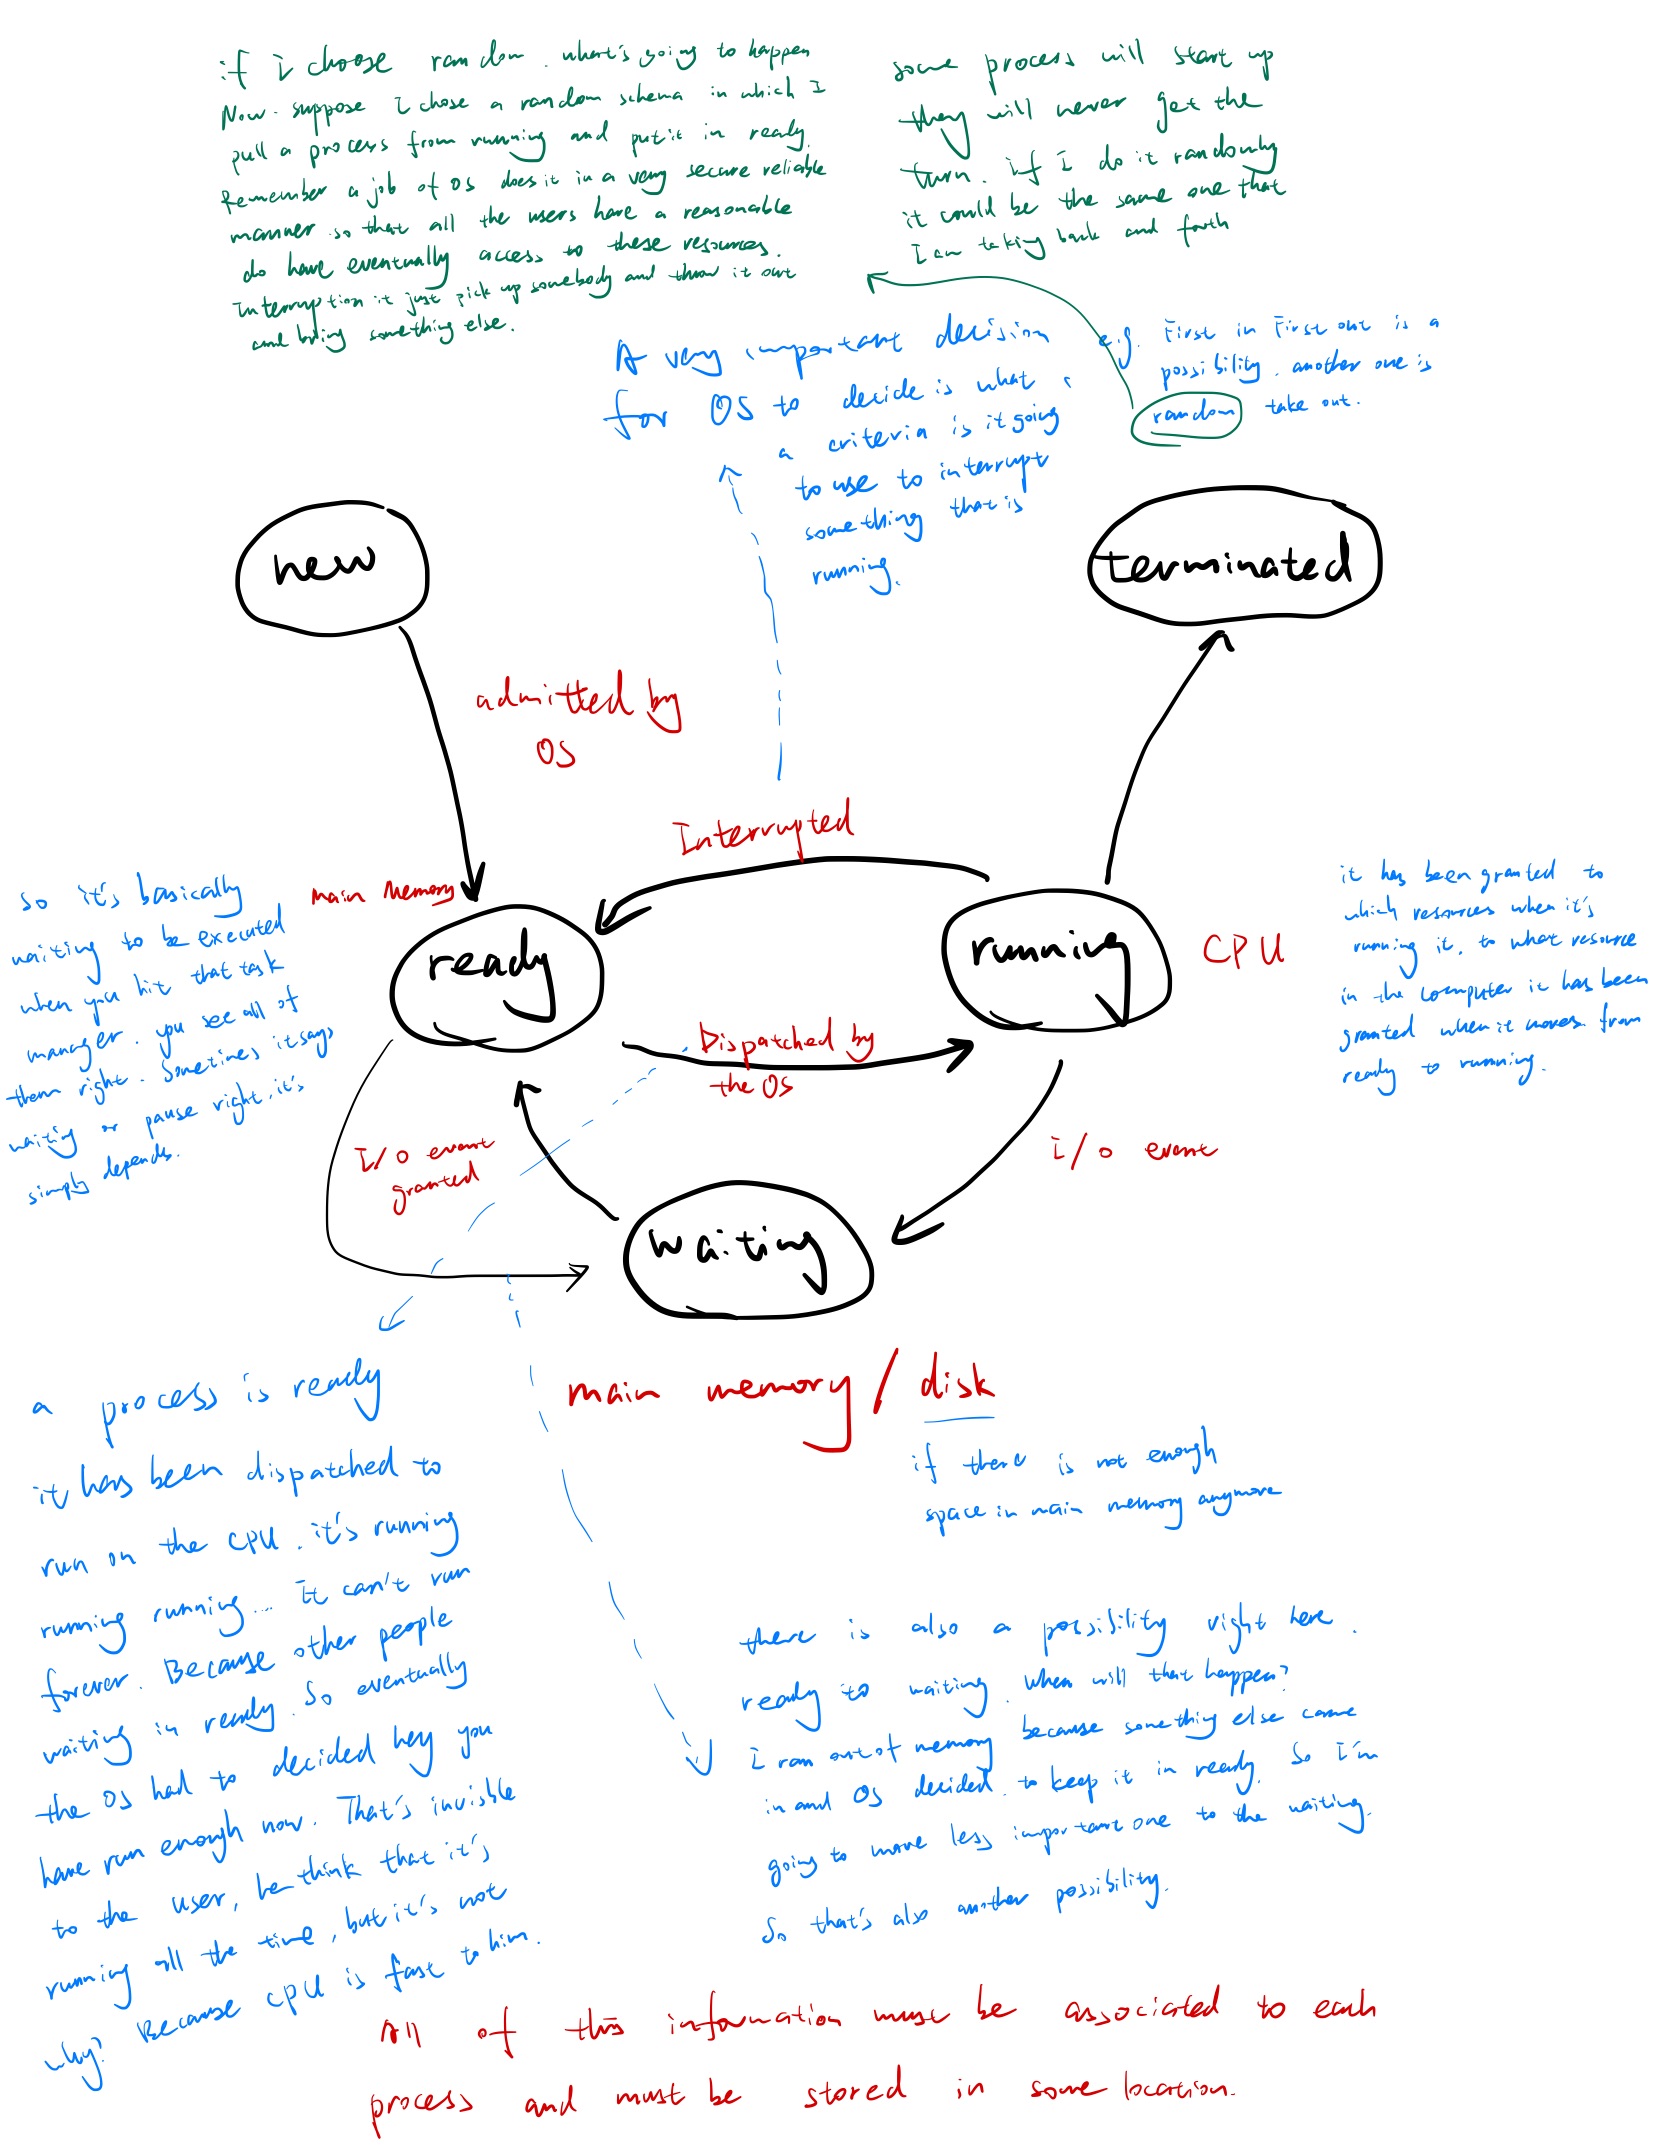 if I choose random. what's going to happen
Now. suppose I chose a random schema in which I
pull a process from running and put it in ready.
Remember a job of OS does it in a very secure reliable
manner so that all the users have a reasonable
do have eventually access to these resources.
Interruption it just pick up somebody and throw it out
and bring something else.
some process will start up
they will never get the
turn. if I do it randomly
it could be the same one that
I am taking back and forth
A very important decision
for OS to decide is what
a criteria is it going
to use to interrupt
something that is
running.
e.g. First in First out is a
possibility. another one is
random take out.
new
terminated
admitted by
OS
Interrupted
so it's basically
waiting to be executed
when you hit that task
manager. you see all of
them right. Sometimes it says
waiting or pause right, it's
simply depends.
main memory
ready
running
CPU
it has been granted to
which resources when it's
running it, to what resource
in the computer it has been
granted when it moves from
ready to running.
Dispatched by
the OS
I/O event
granted
I/O event
waiting
main memory / disk
if there is not enough
space in main memory anymore
a process is ready
it has been dispatched to
run on the CPU. it's running
running running... It can't run
forever. Because other people
waiting in ready. So eventually
the OS had to decided hey you
have run enough now. That's invisble
to the user, he think that it's
running all the time, but it's not
why? Because CPU is fast to him.
there is also a possibility right here.
ready to waiting. when will that happen?
I ran out of memory because something else came
in and OS decided to keep it in ready. So I'm
going to move less important one to the waiting.
So that's also another possibility.
All of this information must be associated to each
process and must be stored in some location.